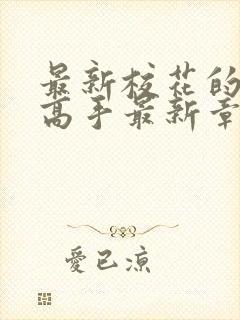 最新校花的
高手最新章
愛已涼